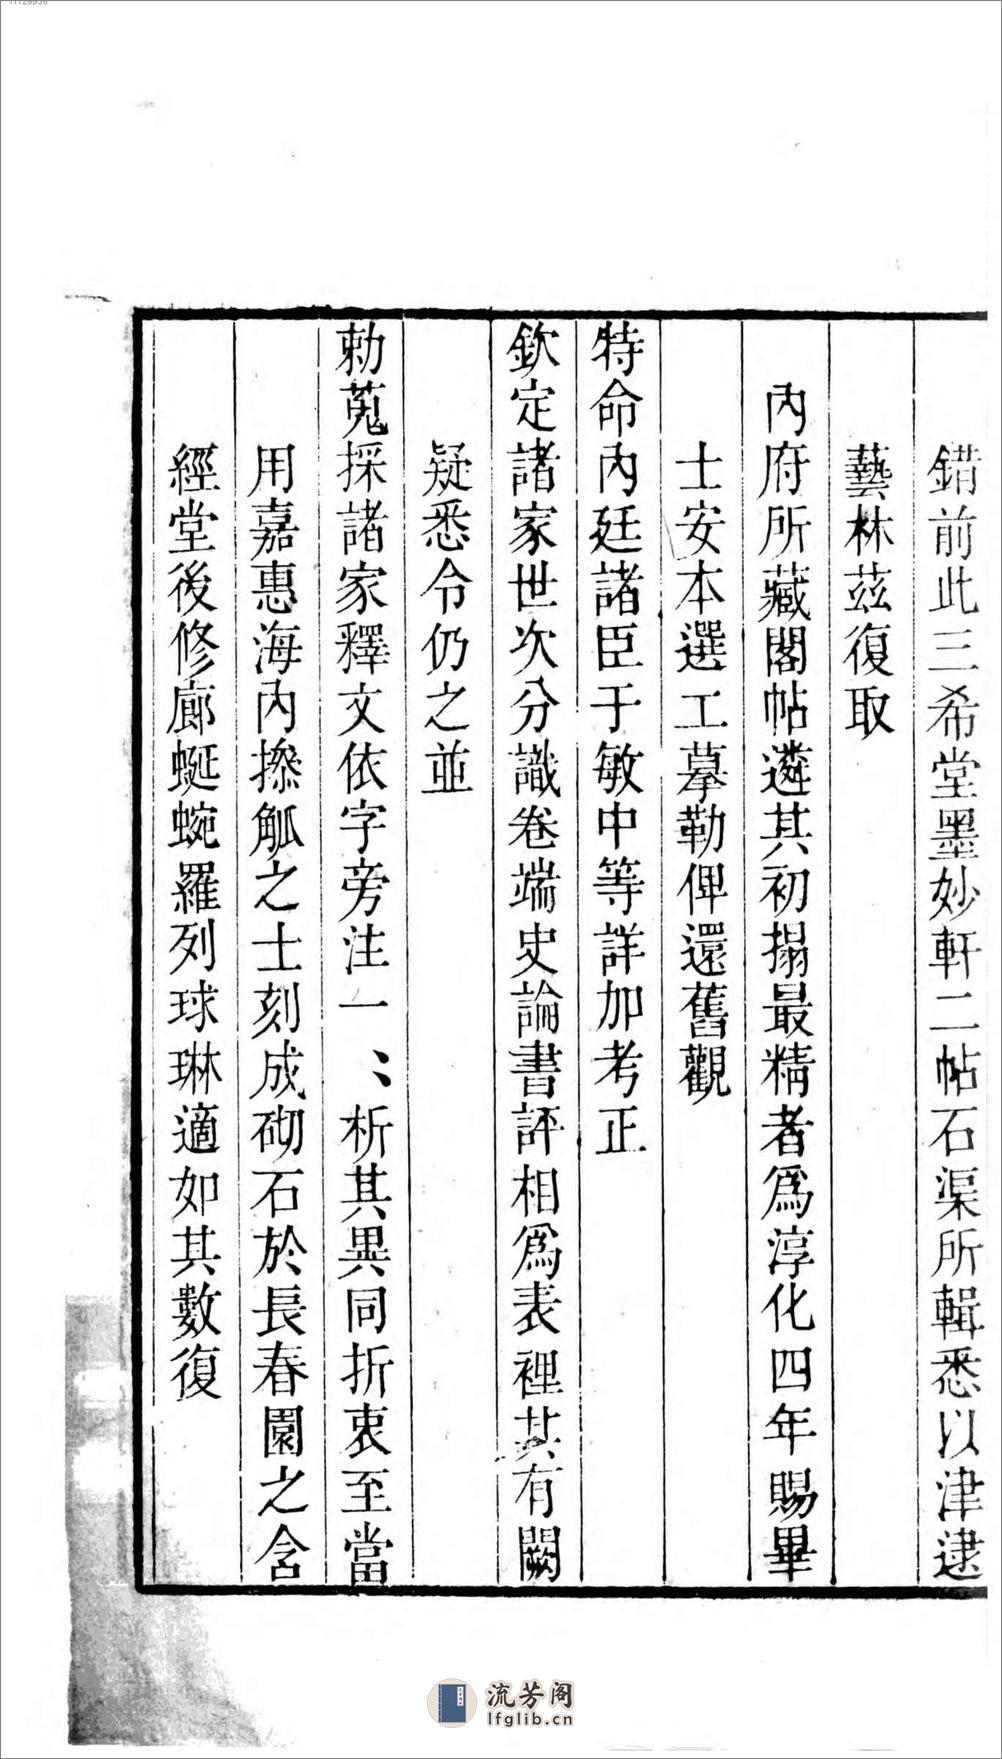 錯前此三希堂墨妙軒二帖石渠所輯悉以津逮
藝林茲復取
內府所藏閣帖遴其初搨最精者爲淳化四年賜畢
士安本選工摹勒俾還舊觀
特命內廷諸臣于敏中等詳加考正
欽定諸家世次分識卷端史論書評相爲表裡其有闕
疑悉令仍之並
勅蒐採諸家釋文依字旁注一〻析其異同折衷至當
用嘉惠海內摻觚之士刻成砌石於長春園之含
經堂後修廊蜒蜿羅列球琳適如其數復
流芳阁
lfglib.cn